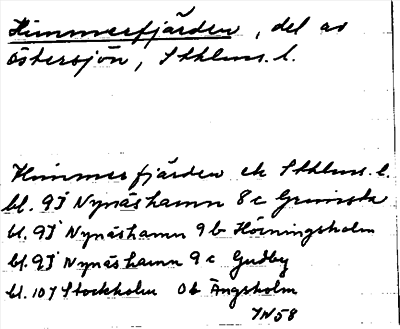 Himmerfjärden, del av
Östersjön, Sthlms. l.
Himmerfjärden ek Sthlms. l.
bl. 9I Nynäshamn 8c Grimsta
bl. 9I Nynäshamn 9b Hörningsholm
bl. 9I Nynäshamn 9c Gudby
bl. 10I Stockholm 0b Ängsholm